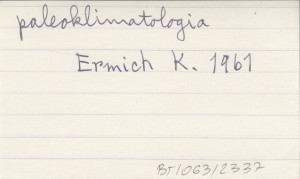 paleoklimatologia
Ermich K. 1961
BT/063/2337